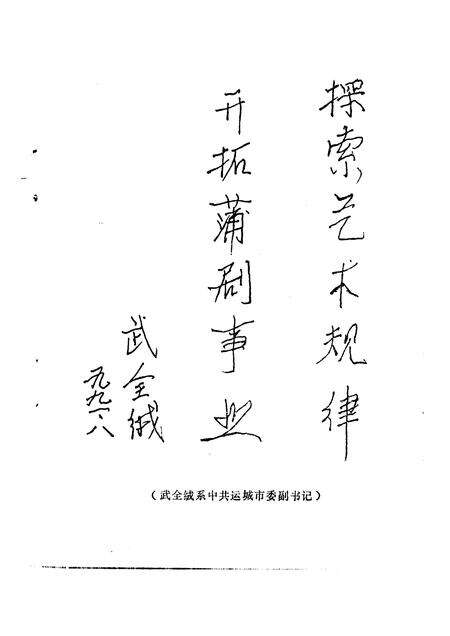 探索艺术规律
开拓蒲剧事业
武全绒
九九一·八
（武全绒系中共运城市委副书记）